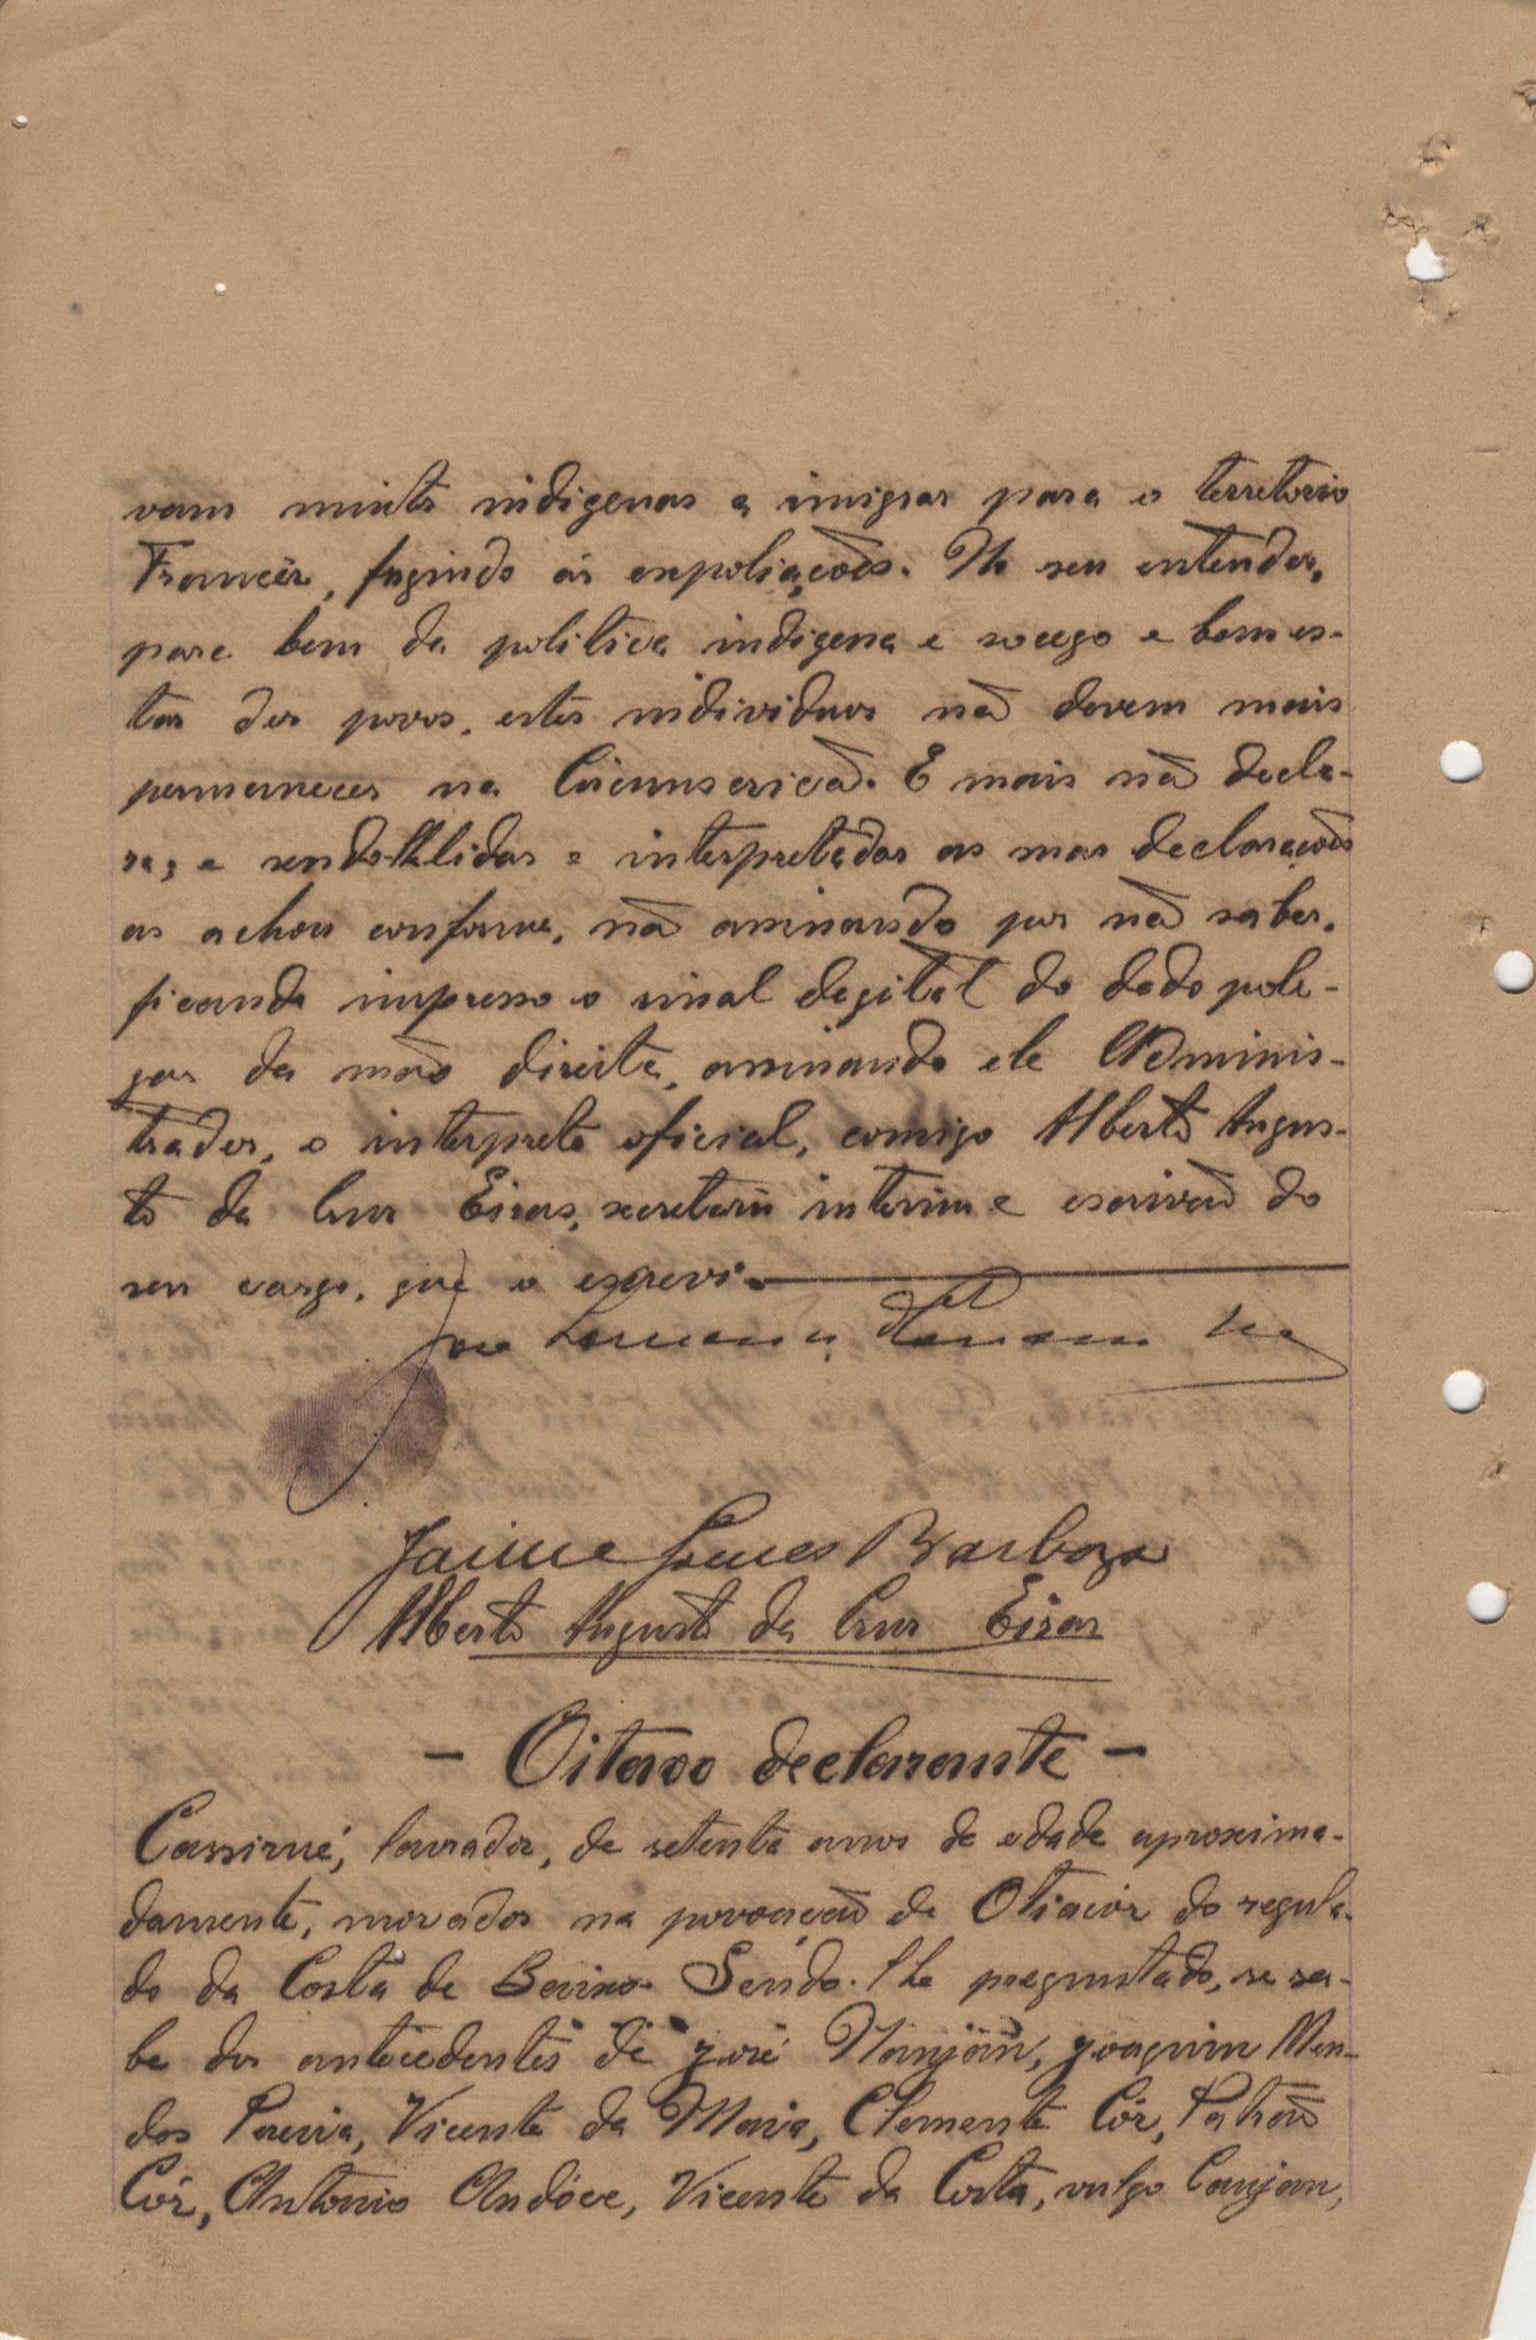 vam muitos indigenas a imigrar para o territorio
Francês, fugindo ás expoliações. No seu entender,
para bem da politica indigena e socego e bem es-
tar dos povos, estes individuos não devem mais
permanecer na Circunscrição. E mais não decla-
ra, e sendo-lhe lidas e interpretadas as suas declarações
as achou conforme, não assinando por não saber,
ficando impresso o sinal degital do dedo pole-
gar da mão direita, assinando ele Adminis-
trador, o interprete oficial, comigo Alberto Augus-
to da Cruz Eiras, secretario interino e escrivão do
seu cargo, que o escrevi.
Jaime Gomes Barboza
Alberto Augusto da Cruz Eiras
- Oitavo declarante -
Cassirué, lavrador, de setenta anos de edade aproxima-
damente, morador na povoação de Otiacór do regula-
do da Costa de Baixo. Sendo-lhe preguntado, se sa-
be dos antecedentes de José Nanján, Joaquim Men-
des Pereira, Vicente da Maria, Clemente Cór, Patrão
Cór, Antonio Andóce, Vicente da Costa, vulgo Canjan,